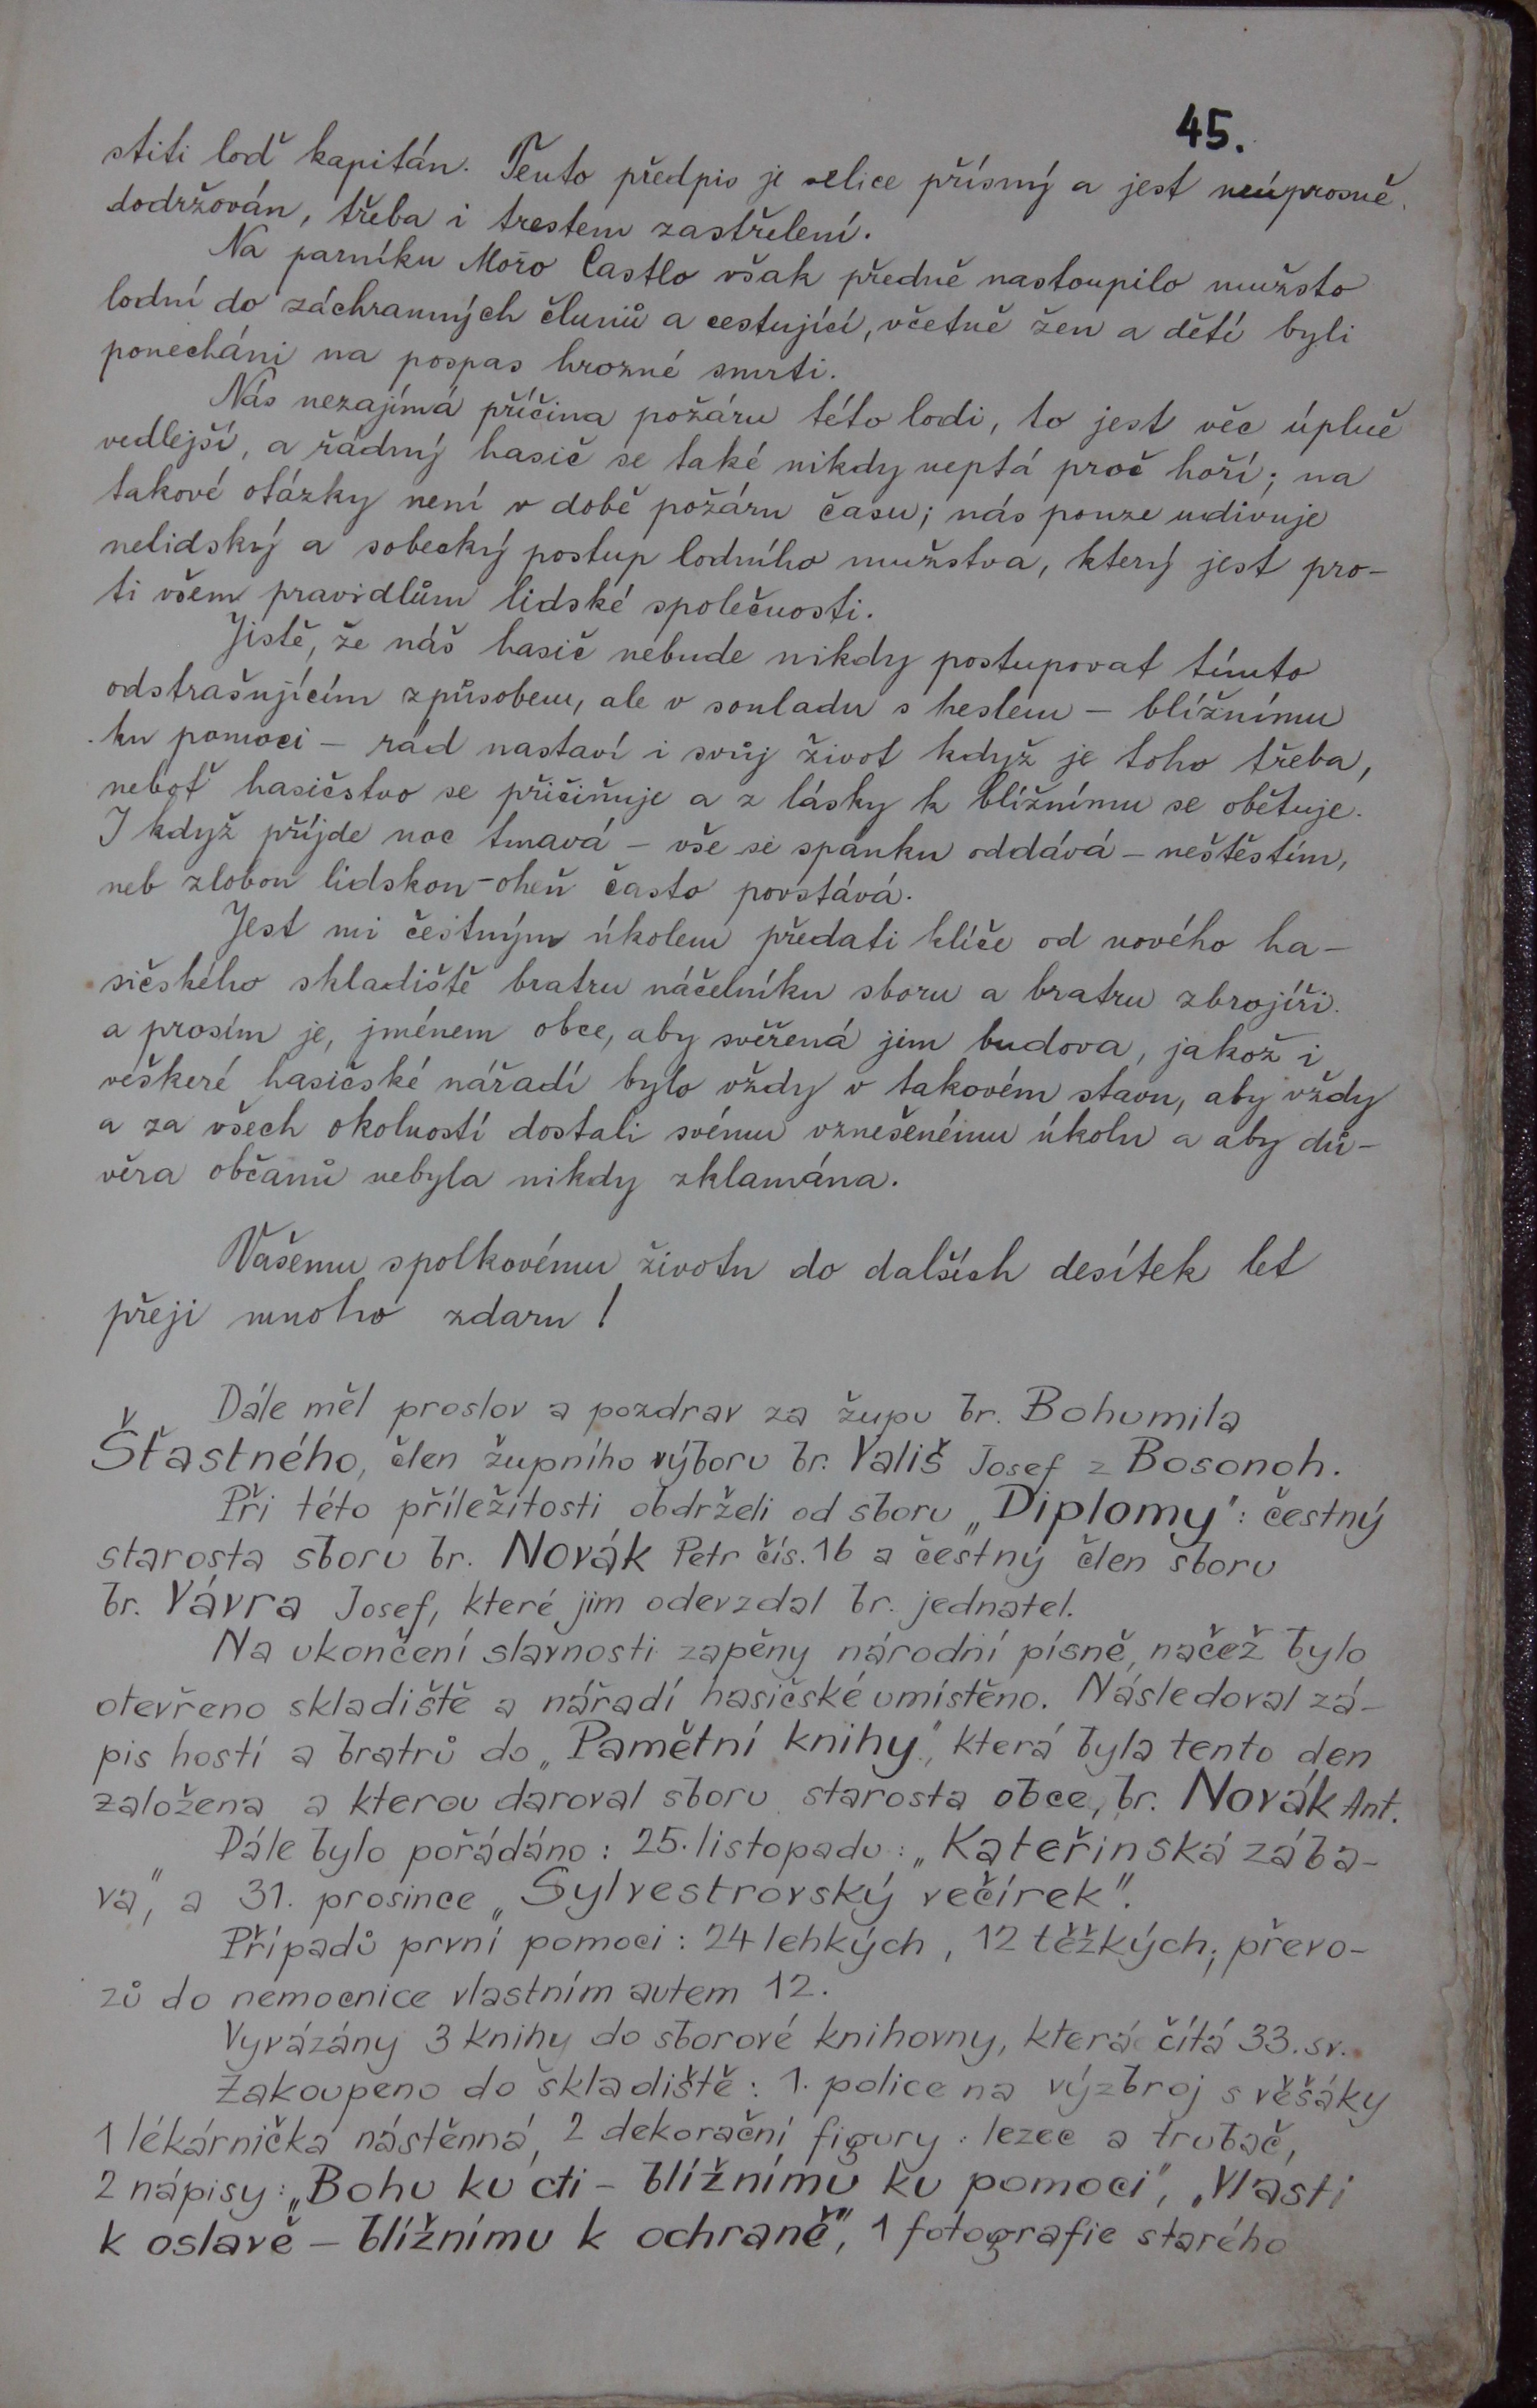 45.
stiti loď kapitán. Tento předpis je velice přísný a jest neúprosně
dodržován, třeba i trestem zastřelení.
Na parníku Moro Castlo však předně nastoupilo mužsto
lodní do záchranných člunů a cestující, včetně žen a dětí byli
ponecháni na pospas hrozné smrti.
Nás nezajímá příčina požáru této lodi, to jest věc úplně
vedlejší, a řádný hasič se také nikdy neptá proč hoří; na
takové otázky není v době požáru času; nás pouze udivuje
nelidský a sobecký postup lodního mužstva, který jest pro-
ti všem pravidlům lidské společnosti.
Jistě, že náš hasič nebude nikdy postupovat tímto
odstrašujícím způsobem, ale v souladu s heslem - bližnímu
ku pomoci - rád nastaví i svůj život když je toho třeba,
neboť hasičstvo se přičiňuje a z lásky k bližnímu se obětuje.
I když příjde noc tmavá - vše se spánku oddává - neštěstím,
neb zlobou lidskou - oheň často povstává.
Jest mi čestným úkolem předati klíče od nového ha-
sičského skladiště bratru náčelníku sboru a bratru zbrojíři.
a prosím je, jménem obce, aby svěřená jim budova, jakož i
veškeré hasičské nářadí bylo vždy v takovém stavu, aby vždy
a za všech okolností dostali svému vznešenému úkolu a aby dů-
věra občanů nebyla nikdy zklamána.
Vašemu spolkovému životu do dalších desítek let
přeji mnoho zdaru!
Dále měl proslov a pozdrav za župu br. Bohumila
Šťastného, člen župního výboru br. Vališ Josef z Bosonoh.
Při této příležitosti obdrželi od sboru „Diplomy": čestný
starosta sboru br. Novák Petr čís. 16 a čestný člen sboru
br. Vávra Josef, které jim odevzdal br. jednatel.
Na ukončení slavnosti zapěny národní písně, načež bylo
otevřeno skladiště a nářadí hasičské umístěno. Následoval zá-
pis hostí a bratrů do „Pamětní knihy", která byla tento den
založena a kterou daroval sboru starosta obce, br. Novák Ant.
Dále bylo pořádáno: 25. listopadu: „Kateřinská zába-
va", a 31. prosince „Sylvestrovský večírek".
Případů první pomoci: 24 lehkých, 12 těžkých; převo-
zů do nemocnice vlastním autem 12.
Vyvázány 3 knihy do sborové knihovny, která čítá 33. sv.
Zakoupeno do skladiště: 1. police na výzbroj s věšáky
1 lékárnička nástěnná, 2 dekorační figury: lezec a trubač,
2 nápisy: „Bohu ku cti - bližnímu ku pomoci", „Vlasti
k oslavě - bližnímu k ochraně", 1 fotografie starého